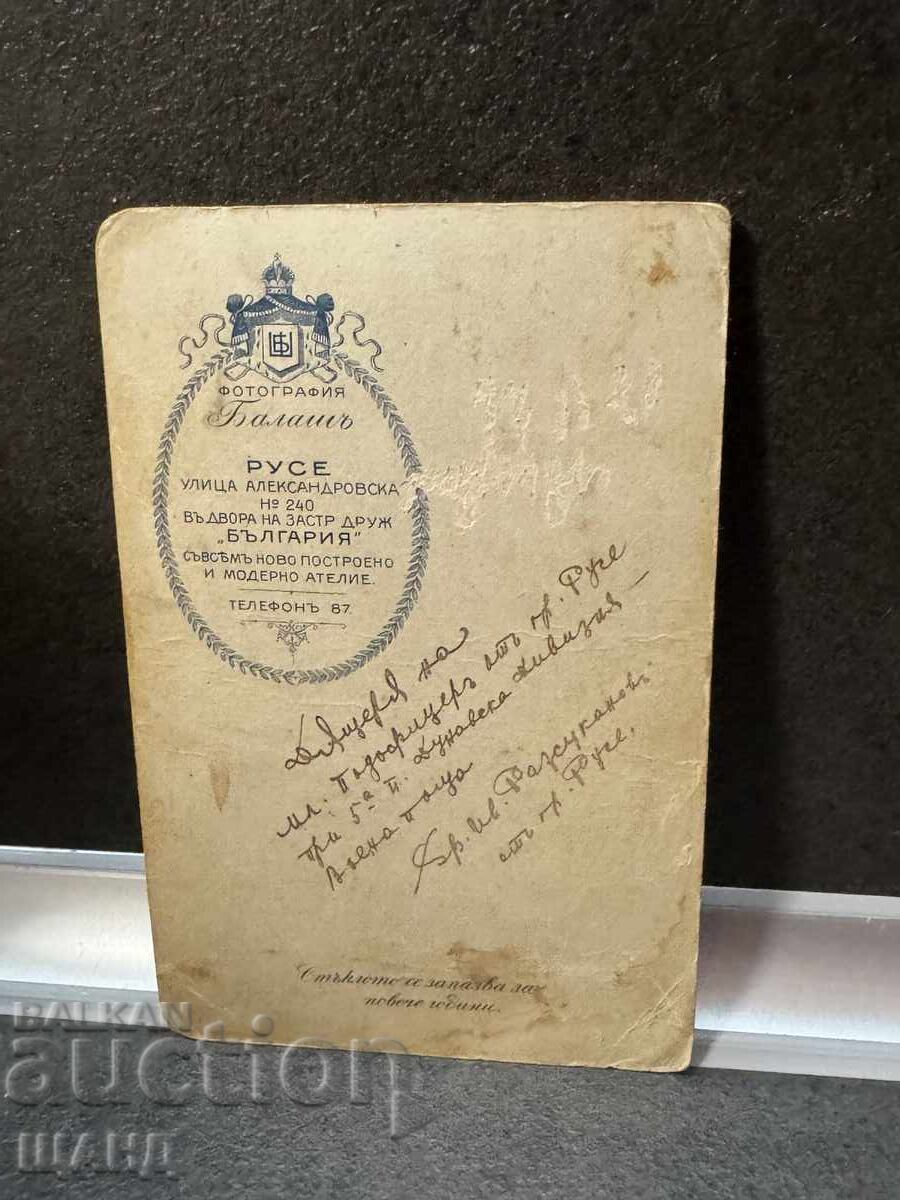 ФОТОГРАФИЯ
Балашъ
РУСЕ
УЛИЦА АЛЕКСАНДРОВСКА
№ 240
ВЪ ДВОРА НА ЗАСТР ДРУЖ
„БЪЛГАРИЯ"
СЪВСѢМЪ НОВО ПОСТРОЕНО
И МОДЕРНО АТЕЛИЕ.
ТЕЛЕФОНЪ 87.
Дъщеря на
мл. Подофицеръ отъ гр. Русе
при 5ª п. Дунавска Дивизия –
Военна поща
Др. Ив. Разсукановъ
отъ гр. Русе.
Стъклото се запазва за
повече години.
BALKAN
auction
ЩАНД